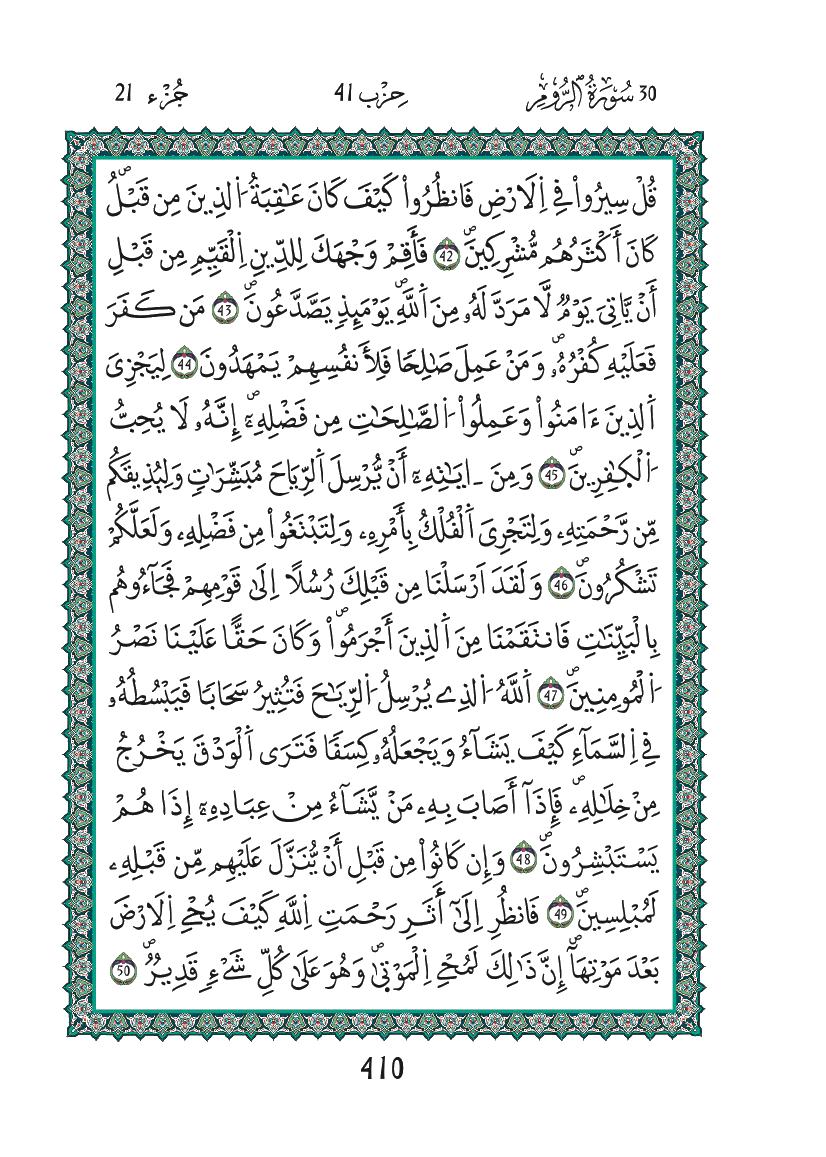 30 سُورَةُ الرُّومِ حِزْب 41 جُزْء 21
قُلْ سِيرُواْ فِے اِلَارْضِ فَانظُرُواْ كَيْفَ كَانَ عَٰقِبَةُ اُ۬لذِينَ مِن قَبْلُۖ
كَانَ أَكْثَرُهُم مُّشْرِكِينَۖ 42 فَأَقِمْ وَجْهَكَ لِلدِّينِ اِ۬لْقَيِّمِ مِن قَبْلِ
أَنْ يَّاتِىَ يَوْمٞ لَّا مَرَدَّ لَهُۥ مِنَ اَ۬للَّهِۖ يَوْمَئِذٖ يَصَّدَّعُونَۖ 43 مَن كَفَرَ
فَعَلَيْهِ كُفْرُهُۥۖ وَمَنْ عَمِلَ صَٰلِحاٗ فَلِأَنفُسِهِمْ يَمْهَدُونَ 44 لِيَجْزِىَ
اَ۬لذِينَ ءَامَنُواْ وَعَمِلُواْ اُ۬لصَّٰلِحَٰتِ مِن فَضْلِهِۦٓۖ إِنَّهُۥ لَا يُحِبُّ
اُ۬لْكٰ۪فِرِينَۖ 45 وَمِنَ اٰيَٰتِهِۦٓ أَنْ يُّرْسِلَ اَ۬لرِّيَاحَ مُبَشِّرَٰتٖ وَلِيُذِيقَكُم
مِّن رَّحْمَتِهِۦ وَلِتَجْرِىَ اَ۬لْفُلْكُ بِأَمْرِهِۦ وَلِتَبْتَغُواْ مِن فَضْلِهِۦ وَلَعَلَّكُمْ
تَشْكُرُونَۖ 46 وَلَقَدَ اَرْسَلْنَا مِن قَبْلِكَ رُسُلًا اِلَىٰ قَوْمِهِمْ فَجَآءُوهُم
بِالْبَيِّنَٰتِ فَانتَقَمْنَا مِنَ اَ۬لذِينَ أَجْرَمُواْۖ وَكَانَ حَقّاً عَلَيْنَا نَصْرُ
اُ۬لْمُومِنِينَۖ 47 اَ۬للَّهُ اُ۬لذِے يُرْسِلُ اُ۬لرِّيَٰحَ فَتُثِيرُ سَحَاباٗ فَيَبْسُطُهُۥ
فِے اِ۬لسَّمَآءِ كَيْفَ يَشَآءُ وَيَجْعَلُهُۥ كِسَفاٗ فَتَرَى اَ۬لْوَدْقَ يَخْرُجُ
مِنْ خِلَٰلِهِۦۖ فَإِذَآ أَصَابَ بِهِۦ مَنْ يَّشَآءُ مِنْ عِبَادِهِۦٓ إِذَا هُمْ
يَسْتَبْشِرُونَۖ 48 وَإِن كَانُواْ مِن قَبْلِ أَنْ يُّنَزَّلَ عَلَيْهِم مِّن قَبْلِهِۦ
لَمُبْلِسِينَۖ 49 فَانظُرِ اِلَىٰٓ أَثَرِ رَحْمَتِ اِ۬للَّهِ كَيْفَ يُحْيِ اِ۬لَارْضَ
بَعْدَ مَوْتِهَآۖ إِنَّ ذَٰلِكَ لَمُحْيِ اِ۬لْمَوْت۪ىٰۖ وَهُوَ عَلَىٰ كُلِّ شَےْءٖ قَدِيرٞۖ 50
410